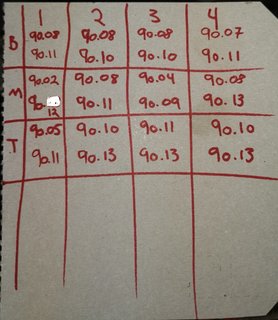 1 2 3 4
B 90.08 90.08 90.08 90.07
90.11 90.10 90.10 90.11
M 90.02 90.08 90.04 90.08
90. 90.11 90.09 90.13
12
T 90.05 90.10 90.11 90.10
90.11 90.13 90.13 90.13